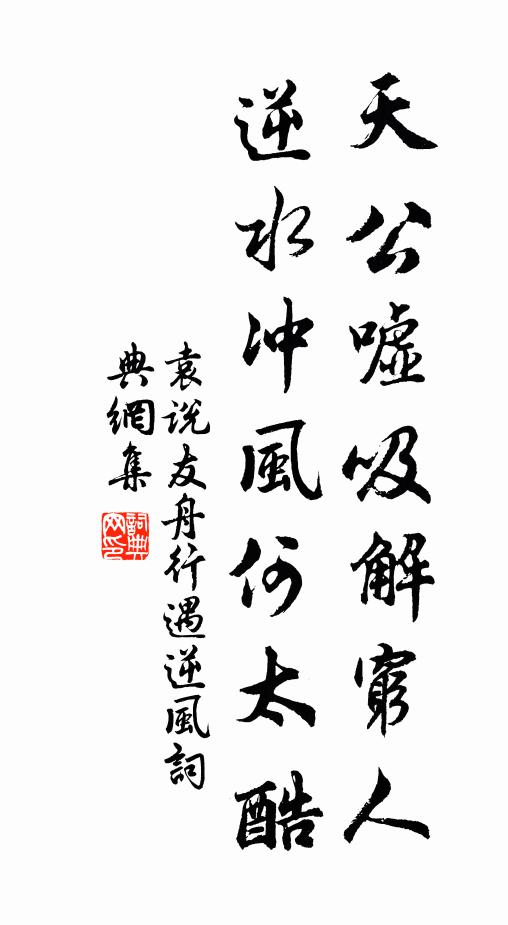 天公嘘吸解窮人
逆水冲風何太酷
袁説友舟行遇逆風詞
典網集
詞典網印